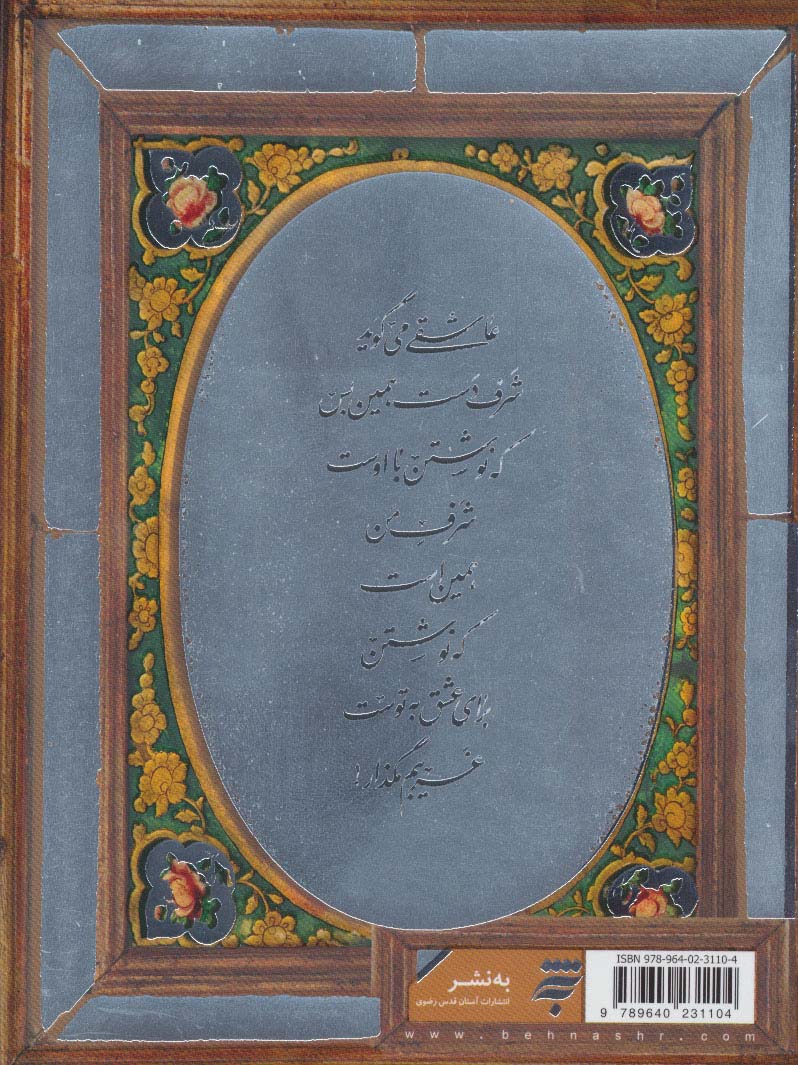 عاشقی می‌گوید
شرف دست همین بس
که نوشتن با اوست
شرفِ من
همین است
که نوشتن
برای عشق به توست
غریبم مگذار!
ISBN 978-964-02-3110-4
به‌نشر
انتشارات آستان قدس رضوی
9 789640 231104
www.behnashr.com